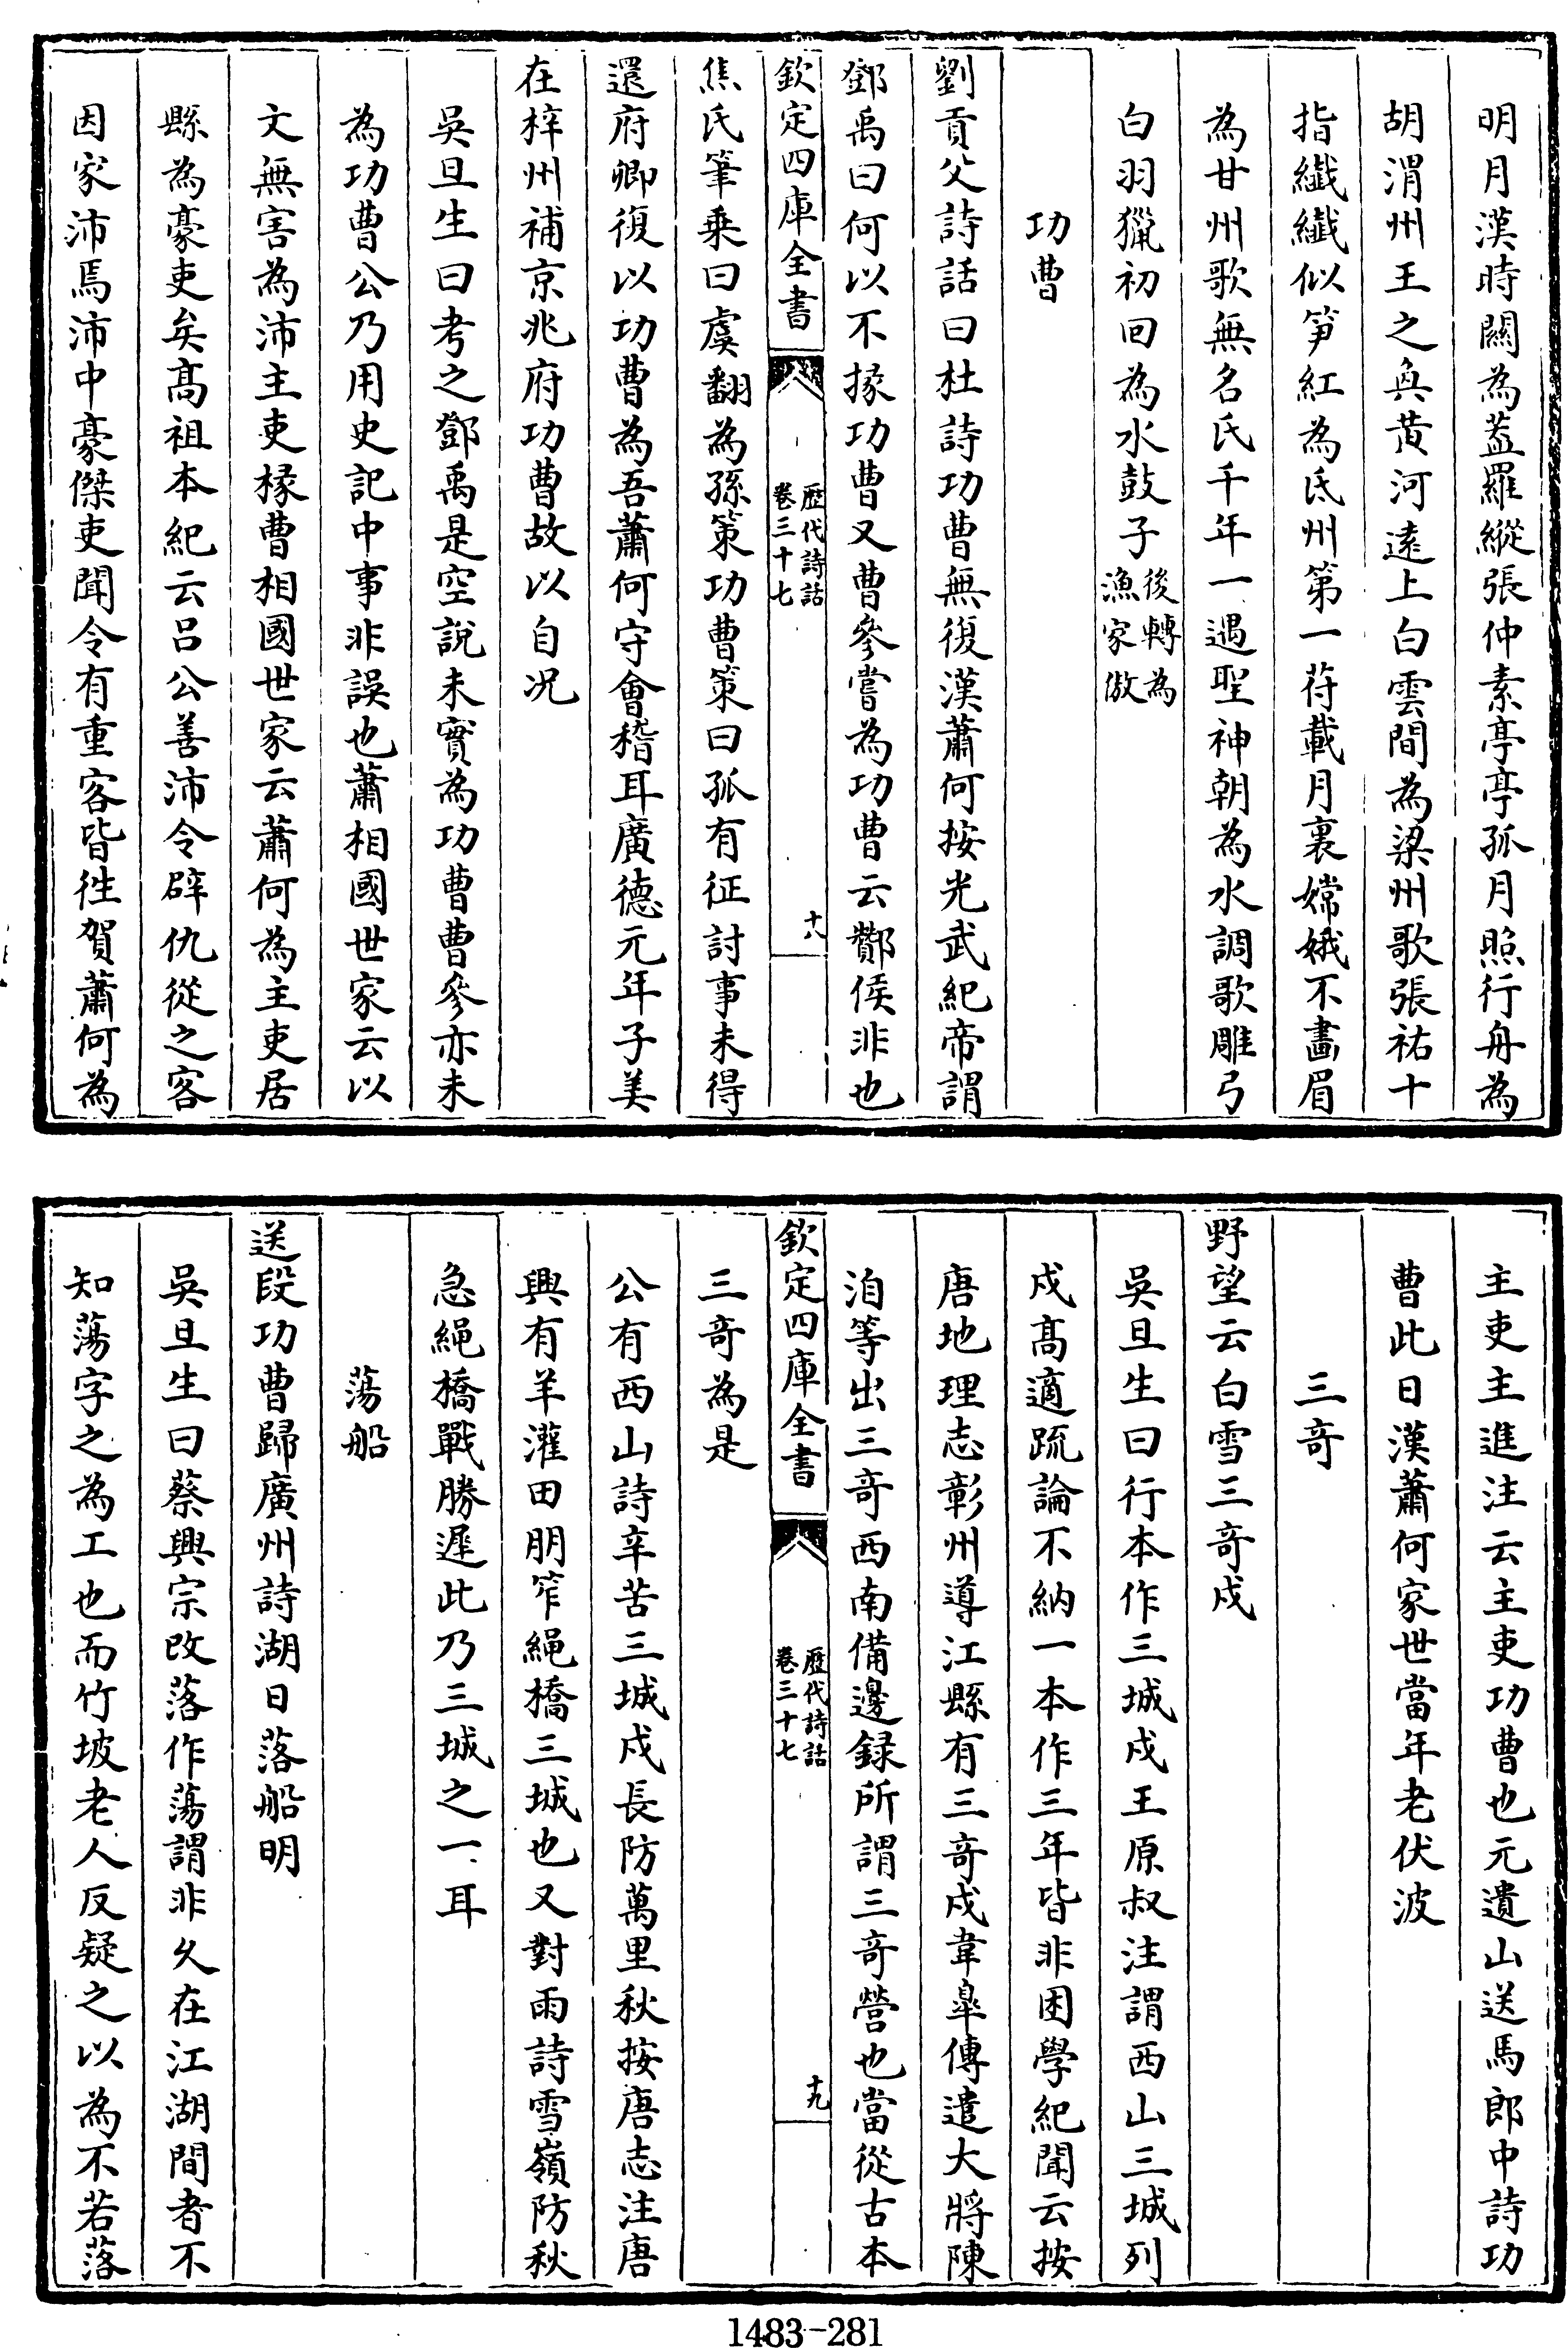 明月漢時關為葢羅縱張仲素亭亭孤月照行舟為
胡渭州王之奐黃河遠上白雲間為梁州歌張祐十
指纎纎似笋紅為氐州第一苻載月裏嫦娥不畫眉
為甘州歌無名氏千年一遇聖神朝為水調歌雕弓
白羽獵初回為水鼓子後轉為漁家傲
功曹
劉貢父詩話曰杜詩功曹無復漢蕭何按光武紀帝謂
鄧禹曰何以不掾功曹又曹參嘗為功曹云酇侯非也
欽定四庫全書
歷代詩話
卷三十七
十八
焦氏筆乗曰虞翻為孫策功曹策曰孤有征討事未得
還府卿復以功曹為吾蕭何守會稽耳廣德元年子美
在梓州補京兆府功曹故以自况
吳旦生曰考之鄧禹是空說未實為功曹曹參亦未
為功曹公乃用史記中事非誤也蕭相國世家云以
文無害為沛主吏掾曹相國世家云蕭何為主吏居
縣為豪吏矣髙祖本紀云吕公善沛令辟仇從之客
因家沛焉沛中豪傑吏聞令有重客皆徃賀蕭何為
主吏主進注云主吏功曹也元遺山送馬郎中詩功
曹此日漢蕭何家世當年老伏波
三竒
野望云白雪三竒戍
吳旦生曰行本作三城戍王原叔注謂西山三城列
戍髙適疏論不納一本作三年皆非困學紀聞云按
唐地理志彰州導江縣有三竒戍韋臯傳遣大將陳
洎等出三竒西南備邊録所謂三竒營也當從古本
欽定四庫全書
歷代詩話
卷三十七
十九
三竒為是
公有西山詩辛苦三城戍長防萬里秋按唐志注唐
興有羊灌田朋笮繩橋三城也又對雨詩雪嶺防秋
急繩橋戰勝遲此乃三城之一耳
蕩船
送段功曹歸廣州詩湖日落船明
吳旦生曰蔡興宗改落作蕩謂非久在江湖間者不
知蕩字之為工也而竹坡老人反疑之以為不若落
1483-281